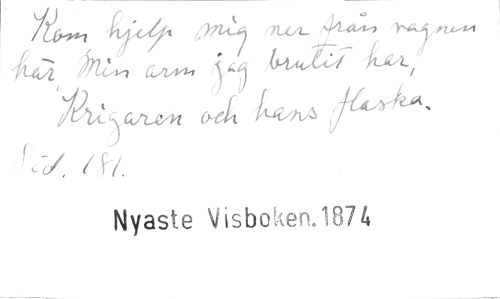 Kom hjelp mig ner från vagnen
här, Min arm jag brutit har,
Krigaren och hans flaska.
Sid. 181.
Nyaste Visboken. 1874